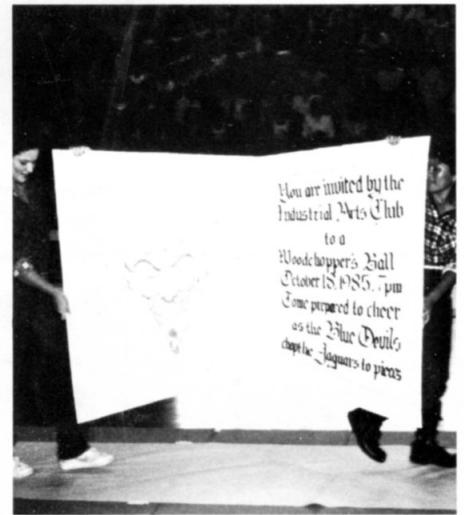 You are invited by the
Industrial Arts Club
to a
Woodchopper's Ball
October 18, 1985, 7pm
Come prepared to cheer
as the Blue Devils
chop the Jaguars to pieces